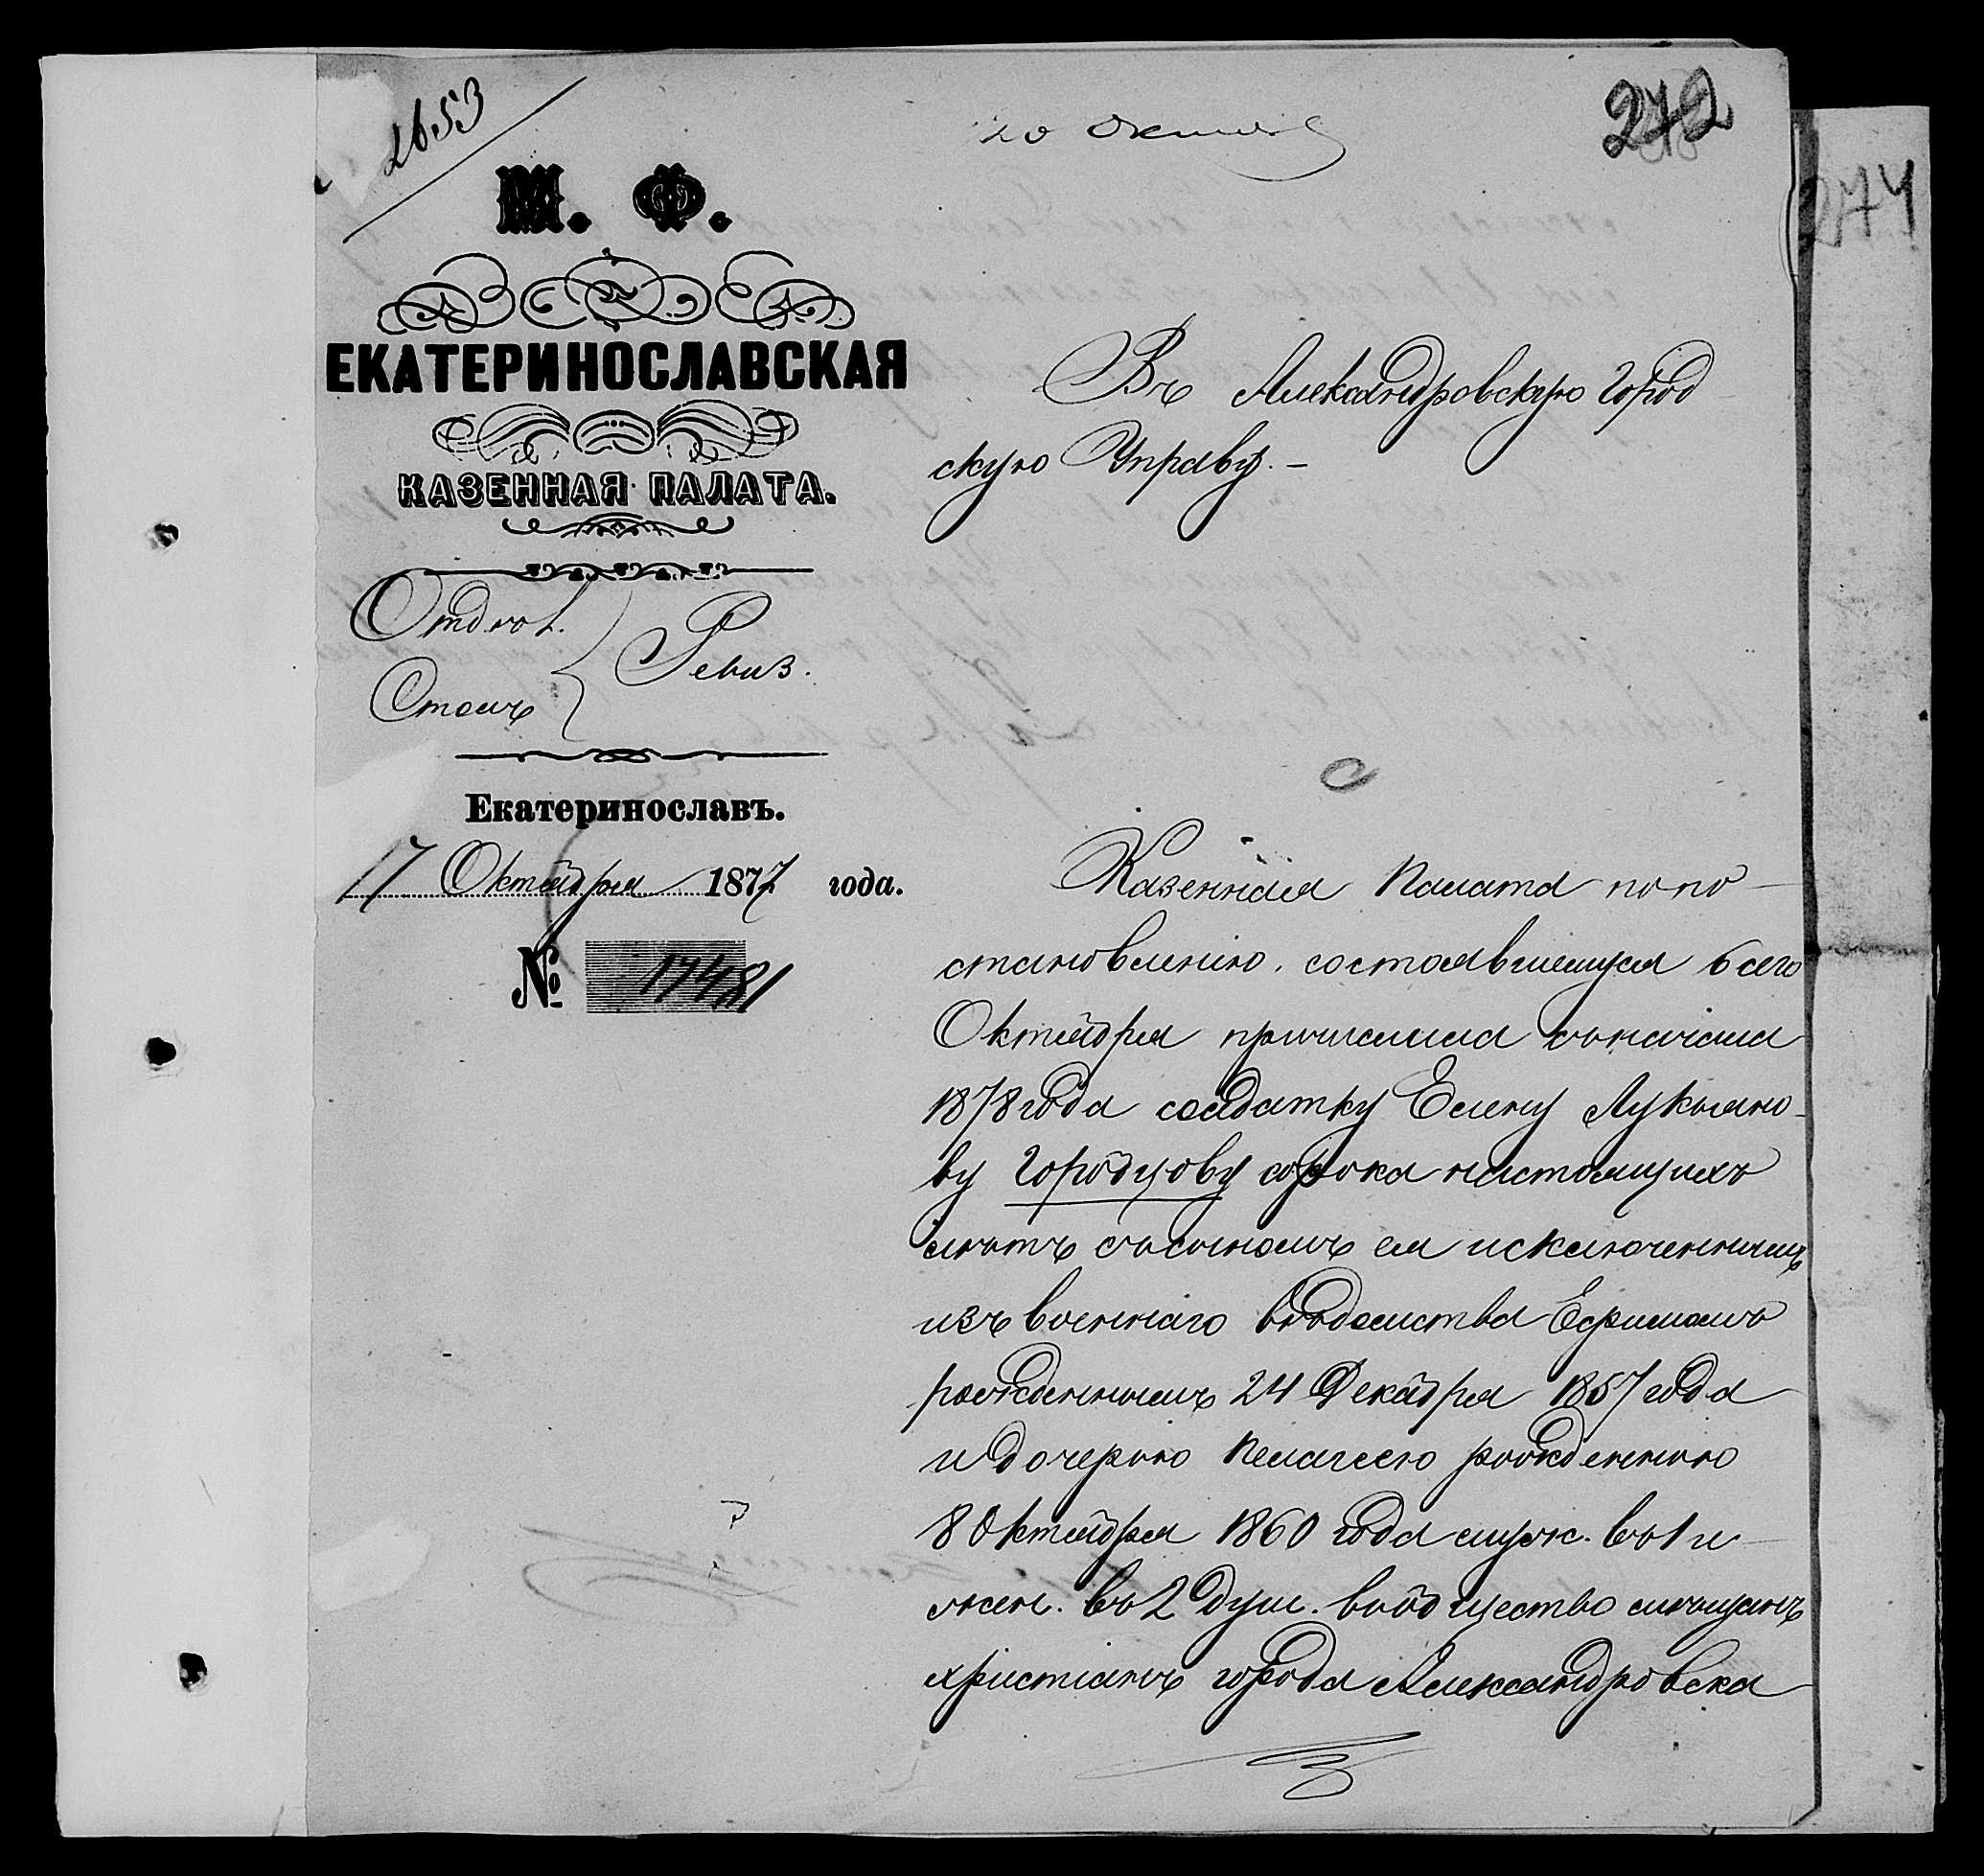 2653
20 Октяб
272
274
М. Ф.
ЕКАТЕРИНОСЛАВСКАЯ
КАЗЕННАЯ ПАЛАТА.
Отдѣл.
Столъ
Ревиз.
Екатеринославъ.
17 Октября 1877 года.
№ 17481
Въ Александровскую Город
скую Управу. –
Казенная Палата по по
становленію, состоявшемуся 6 сего
Октября причислила съ начала
1878 года солдатку Елену Лукьяно-
ву Городцову сорока настоящихъ
лѣтъ съ сыномъ ея исключеннымъ
изъ военнаго вѣдомства Ефимомъ
рожденнымъ 24 Декабря 1857 года
и дочерью Пелагеею рожденною
8 Октября 1860 года муж. въ 1 и
жен. въ 2 душ. въ общество мѣщанъ
христіанъ города Александровска